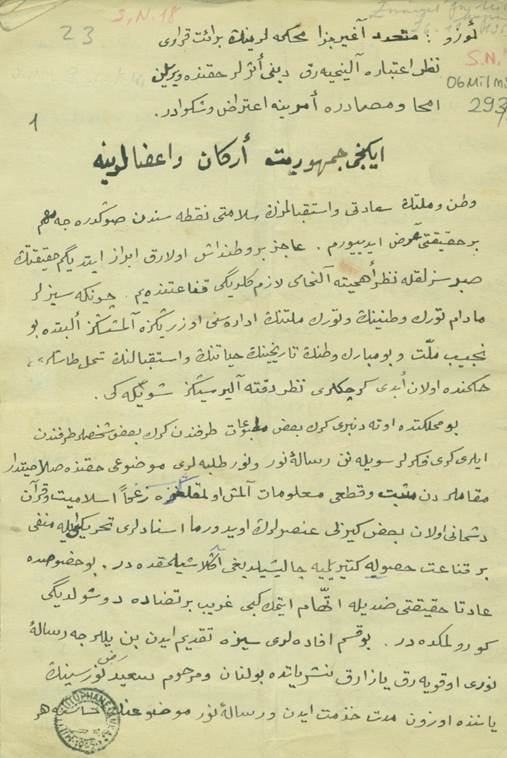 23
S.N. 18
S.N.
06 Mil
293
اوزو : متعدد آغیر جزا محکمه لرینڭ برائت قراری
نظر اعتباره آلینمیه رق دینی أثرلر حقنده ویریلن
امحا و مصادره أمرینه اعتراض و شکوادر.
١
ایکنجی جمهوریت أرکان و اعضالرینه
وطن و ملتڭ سعادتی و استقبالمزڭ سلامتی نقطه سندن صوڭ درجه مهم
بر حقیقتی عرض ایدییورم . عاجز بر وطنداش اولارق ابراز ایتدیگم حقیقتڭ
نظر أهمیته آلنماسی لازم کلدیگی قناعتنده یم . چونکه سیزلر
مادام تورك وطنینڭ و تورك ملتنڭ اداره سنی اوزریڭزه آلمشسڭز ألبته بو
نجیب ملّت و بو مبارك وطنڭ تاریخینڭ حیاتنڭ و استقبالنڭ
حکمنده اولان أبدی نظر دقته آلیرسیڭز شویله که .
بو مملکتده اوته دنبری کرك بعض مطبوعات طرفندن کرك بعض شخصلر طرفندن
ایلری فکرلر سویله نن رسالهٔ نور و نور طلبه لری موضوعی حقنده صلاحیتدار
مقاملردن مثبت و قطعی معلومات آلمش زعماً اسلامیت و قرآن
دشمانی اولان بعض کیزلی عنصرلرڭ اویدورما اسنادلری منفی
بر قناعت حصوله کتیریلمیه چالیشیلدیغی آڭلاشیلمقده در . بو خصوصده
عادتا حقیقتی ضدیله اتّهام ایتمك کبی غریب بر تضاده دوشولدیگی
کورولمکده در . بو قسم افاده لری سیزه تقدیم ایدن بن رسالهٔ
نوری اوقویه رق یازارق نشریاتده بولنان و مرحوم سعید نورسینڭ
یاننده اوزون مدت خدمت ایدن و رسالهٔ نور موضوعنده هر